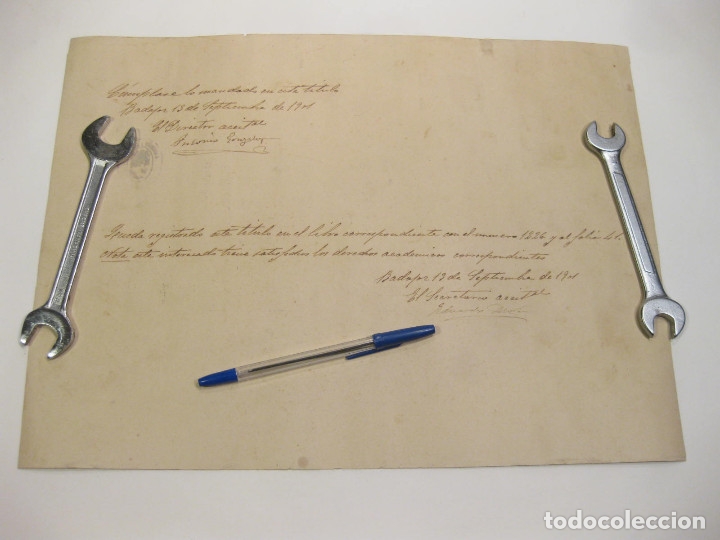 Cúmplase lo mandado en este título
Badajoz 13 de Septiembre de 1901
El Director accital
Antonio Gonzalez
Queda registrado este título en el libro correspondiente con el numero 1226 y al folio 41.
Nota este interesado tiene satisfechos los derechos academicos correspondientes
Badajoz 13 de Septiembre de 1901
El Secretario accital
Eduardo
todocoleccion